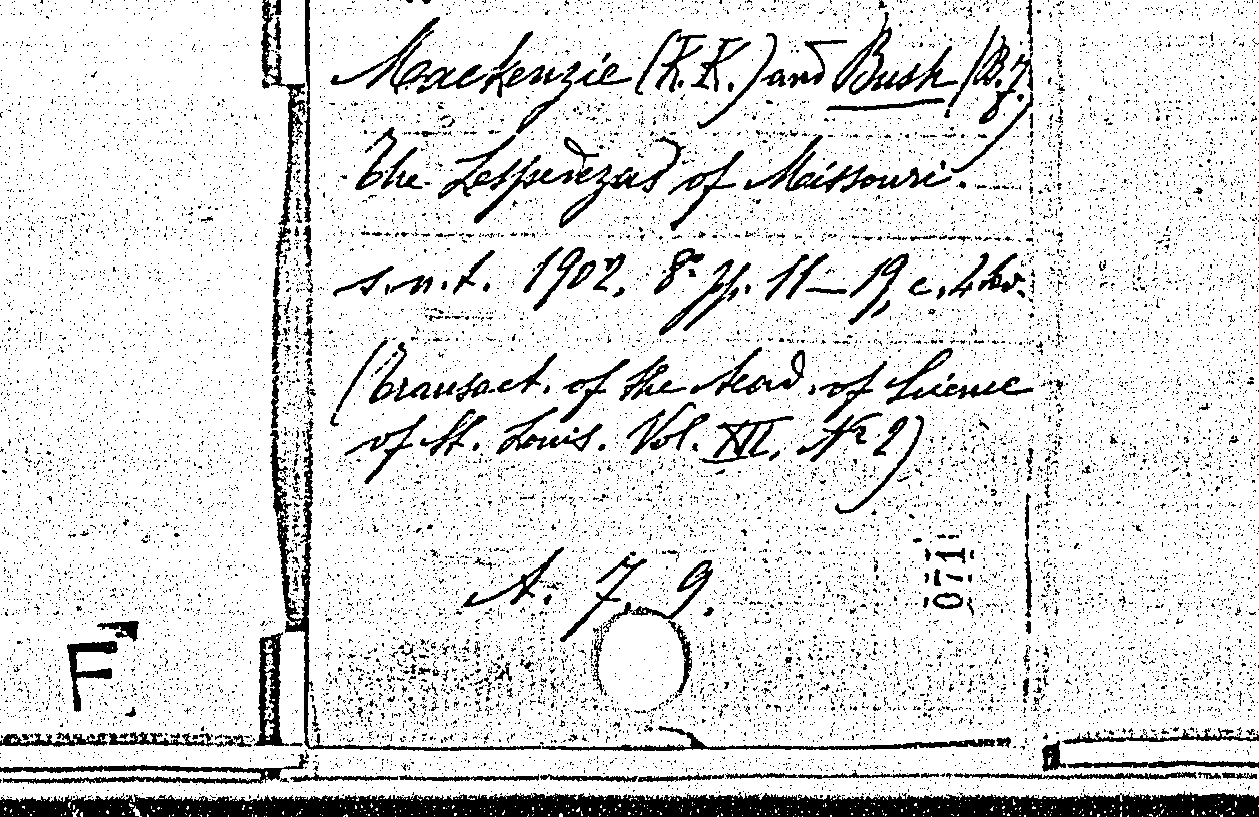 Mackenzie (K. K.) and Bush (B. F.)
The Lespedezas of Missouri.
s.n.t. 1902. 8° pp. 11–19, c. 4 tav.
(Transact. of the Acad. of Science
of St. Louis. Vol. XII, Nr 2)
A. 7. 9.
071
F